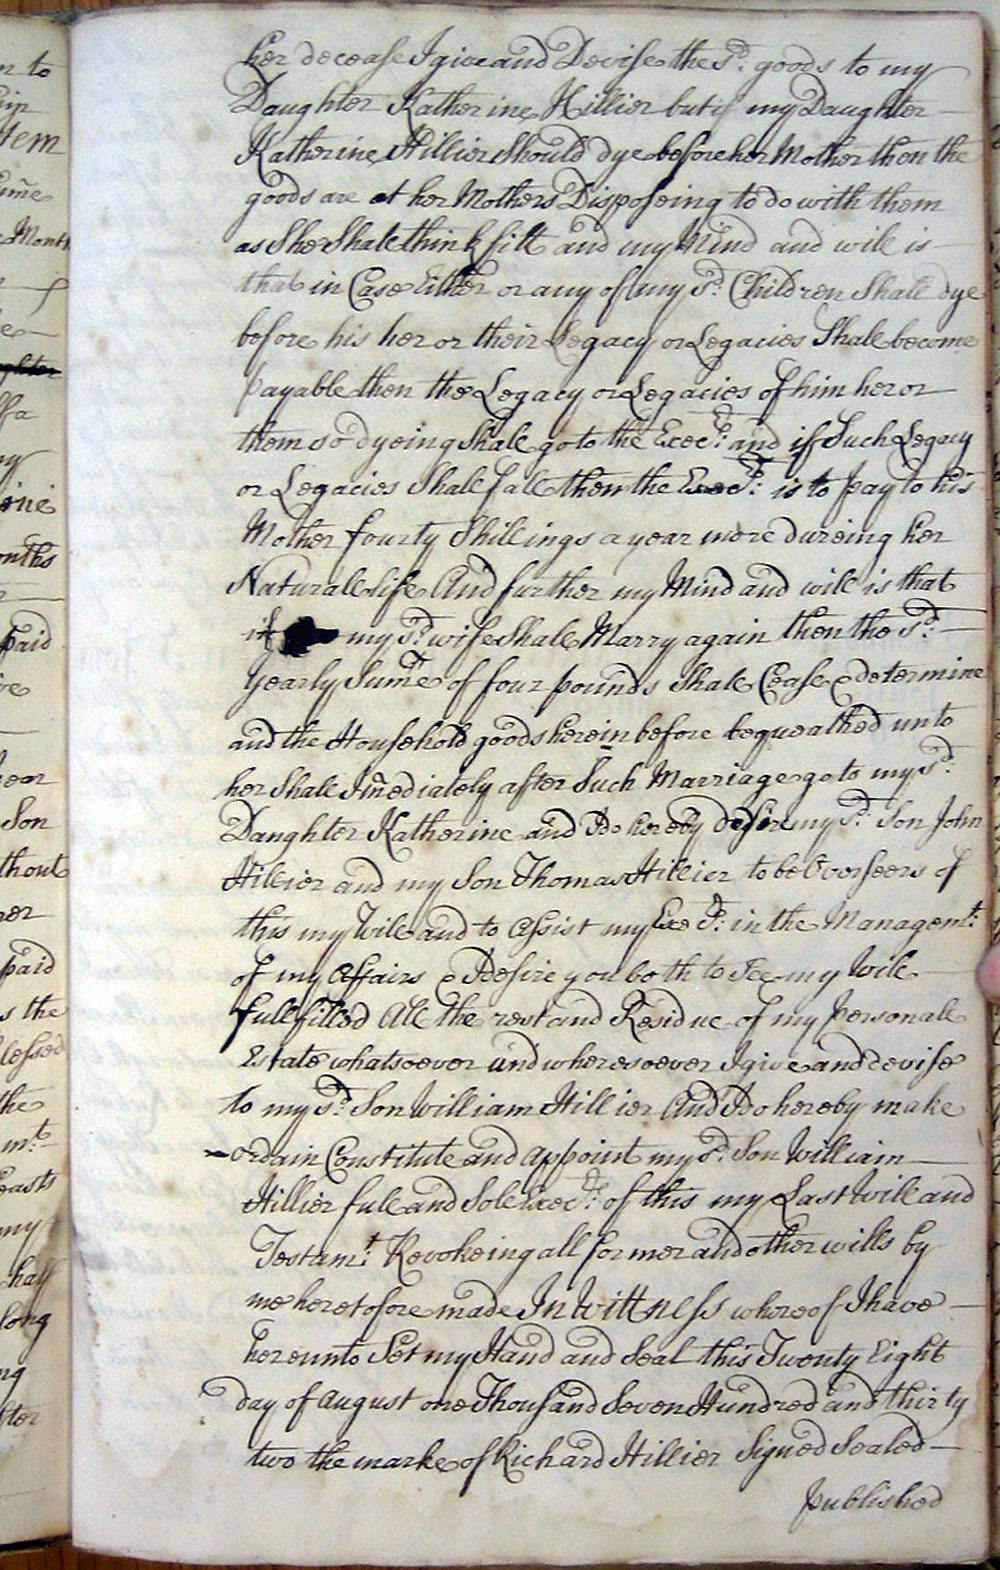 her decease I give and Devise the sd. goods to my
Daughter Katherine Hillier but if my Daughter
Katherine Hillier Should dye before her Mother then the
goods are at her Mothers Disposeing to do with them
as She Shall think fitt and my Mind and will is
that in Case Either or any of my sd. Children Shall dye
before his her or their Legacy or Legacies Shall become
payable then the Legacy or Legacies of him her or
them so dyeing Shall go to the Execr. and if Such Legacy
or Legacies Shall fall then the Execr. is to pay to his
Mother fourty Shillings a year more dureing her
Naturall life And further my Mind and will is that
if my sd. wife Shall Marry again then the sd.
Yearly Sume of four pounds Shall Cease & determine
and the Household goods herein before bequeathed unto
her Shall Imediately after Such Marriage go to my sd.
Daughter Katherine and Do hereby desire my sd. Son John
Hillier and my Son Thomas Hillier to be Overseers of
this my Will and to Assist my Execr. in the Managemt.
of my Affairs & Desire you both to See my Will
fullfilled All the rest and Residue of my personall
Estate whatsoever and wheresoever I give and devise
to my sd. Son William Hillier And Do hereby make
ordain Constitute and appoint my sd. Son William
Hillier full and Sole Execr. of this my Last Will and
Testamt. Revokeing all former and other wills by
me heretofore made In Wittness whereof I have
hereunto Set my Hand and Seal this Twenty Eight
day of August one Thousand Seven Hundred and thirty
two the marke of Richard Hillier Signed Sealed
published
n to
tem
sume
Month
ffa
onths
paid
year
Son
thout
her
paid
s the
lessed
the
mt.
easts
my
half
long
ng
fter